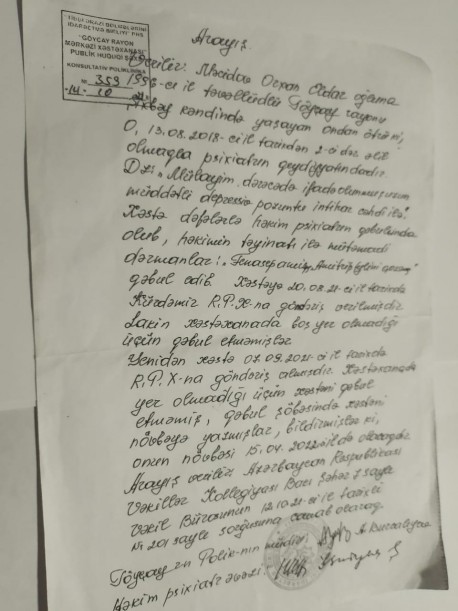 İDARƏETMƏ BİRLİYİ" PHŞ
"GÖYÇAY RAYON
MƏRKƏZİ XƏSTƏXANASI"
PUBLİK HÜQUQİ ŞƏXS
KONSULTATİV POLİKLİNİKA
№ 359
"14" 10
Arayış.
Verilir: Məcidov Orxan Eldar oğluna
1996-cı il təvəllüdlü Göyçay rayonu
kəndində yaşayan ondan ötrü ki,
O, 13.08.2018-ci il tarixdən 2-ci dər. əlil
olmaqla psixiatrın qeydiyyatındadır.
Dz: „Mülayim dərəcədə ifadə olunmuş uzun
müddətli depressiv pozuntu intihar cəhdi ilə"
Xəstə dəfələrlə həkim psixiatrın qəbulunda
olub, həkimin təyinatı ilə mütəmadi
dərmanlar:
qəbul edib. Xəstəyə 20.08.21-ci il tarixdə
Kürdəmir R.P.X-na göndəriş verilmişdir
Lakin xəstəxanada boş yer olmadığı
üçün qəbul etməmişlər
Yenidən xəstə 07.09.2021-ci il tarixdə
R.P.X-na göndəriş almışdır. Xəstəxanada
yer olmadığı üçün xəstəni qəbul
etməmiş, qəbul şöbəsində xəstəni
növbəyə yazmışlar, bildirmişlər ki,
onun növbəsi 15.04.2022 ildə olacaqdır
Arayış verilir: Azərbaycan Respublikası
Vəkillər Kollegiyası Bakı Şəhər 7 saylı
Vəkil Bürosunun 12.10.21-ci il tarixli
№ 201 saylı sorğusuna cavab olaraq.
Göyçay Polik-nın müdiri:
Həkim psixiatr əvəzi: